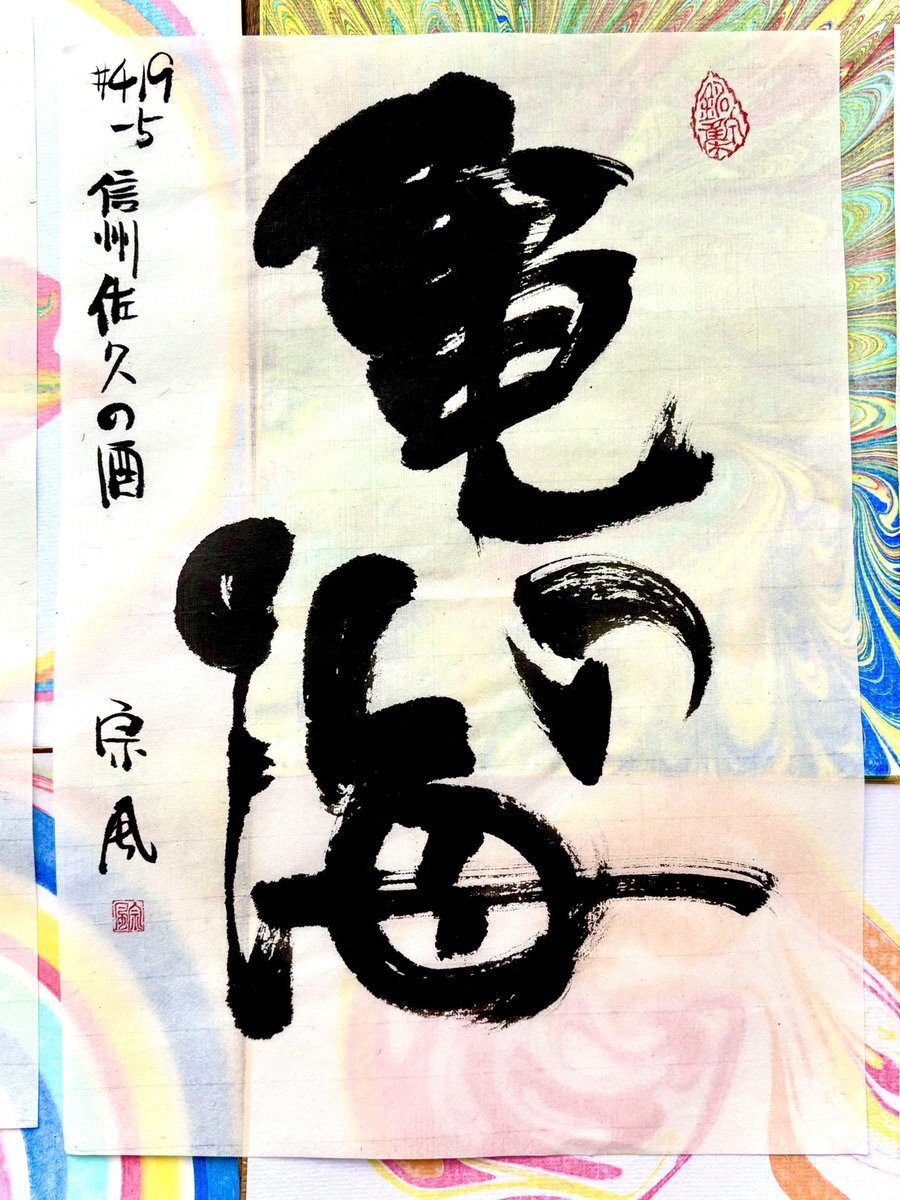 亀の海
#419
-5
信州佐久の酒
宗風